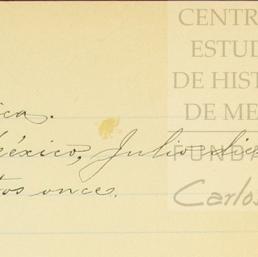 CENTR
ESTUD
DE HIST
DE ME
ica.
México, Julio die
FUNDA
tos once.
Carlos